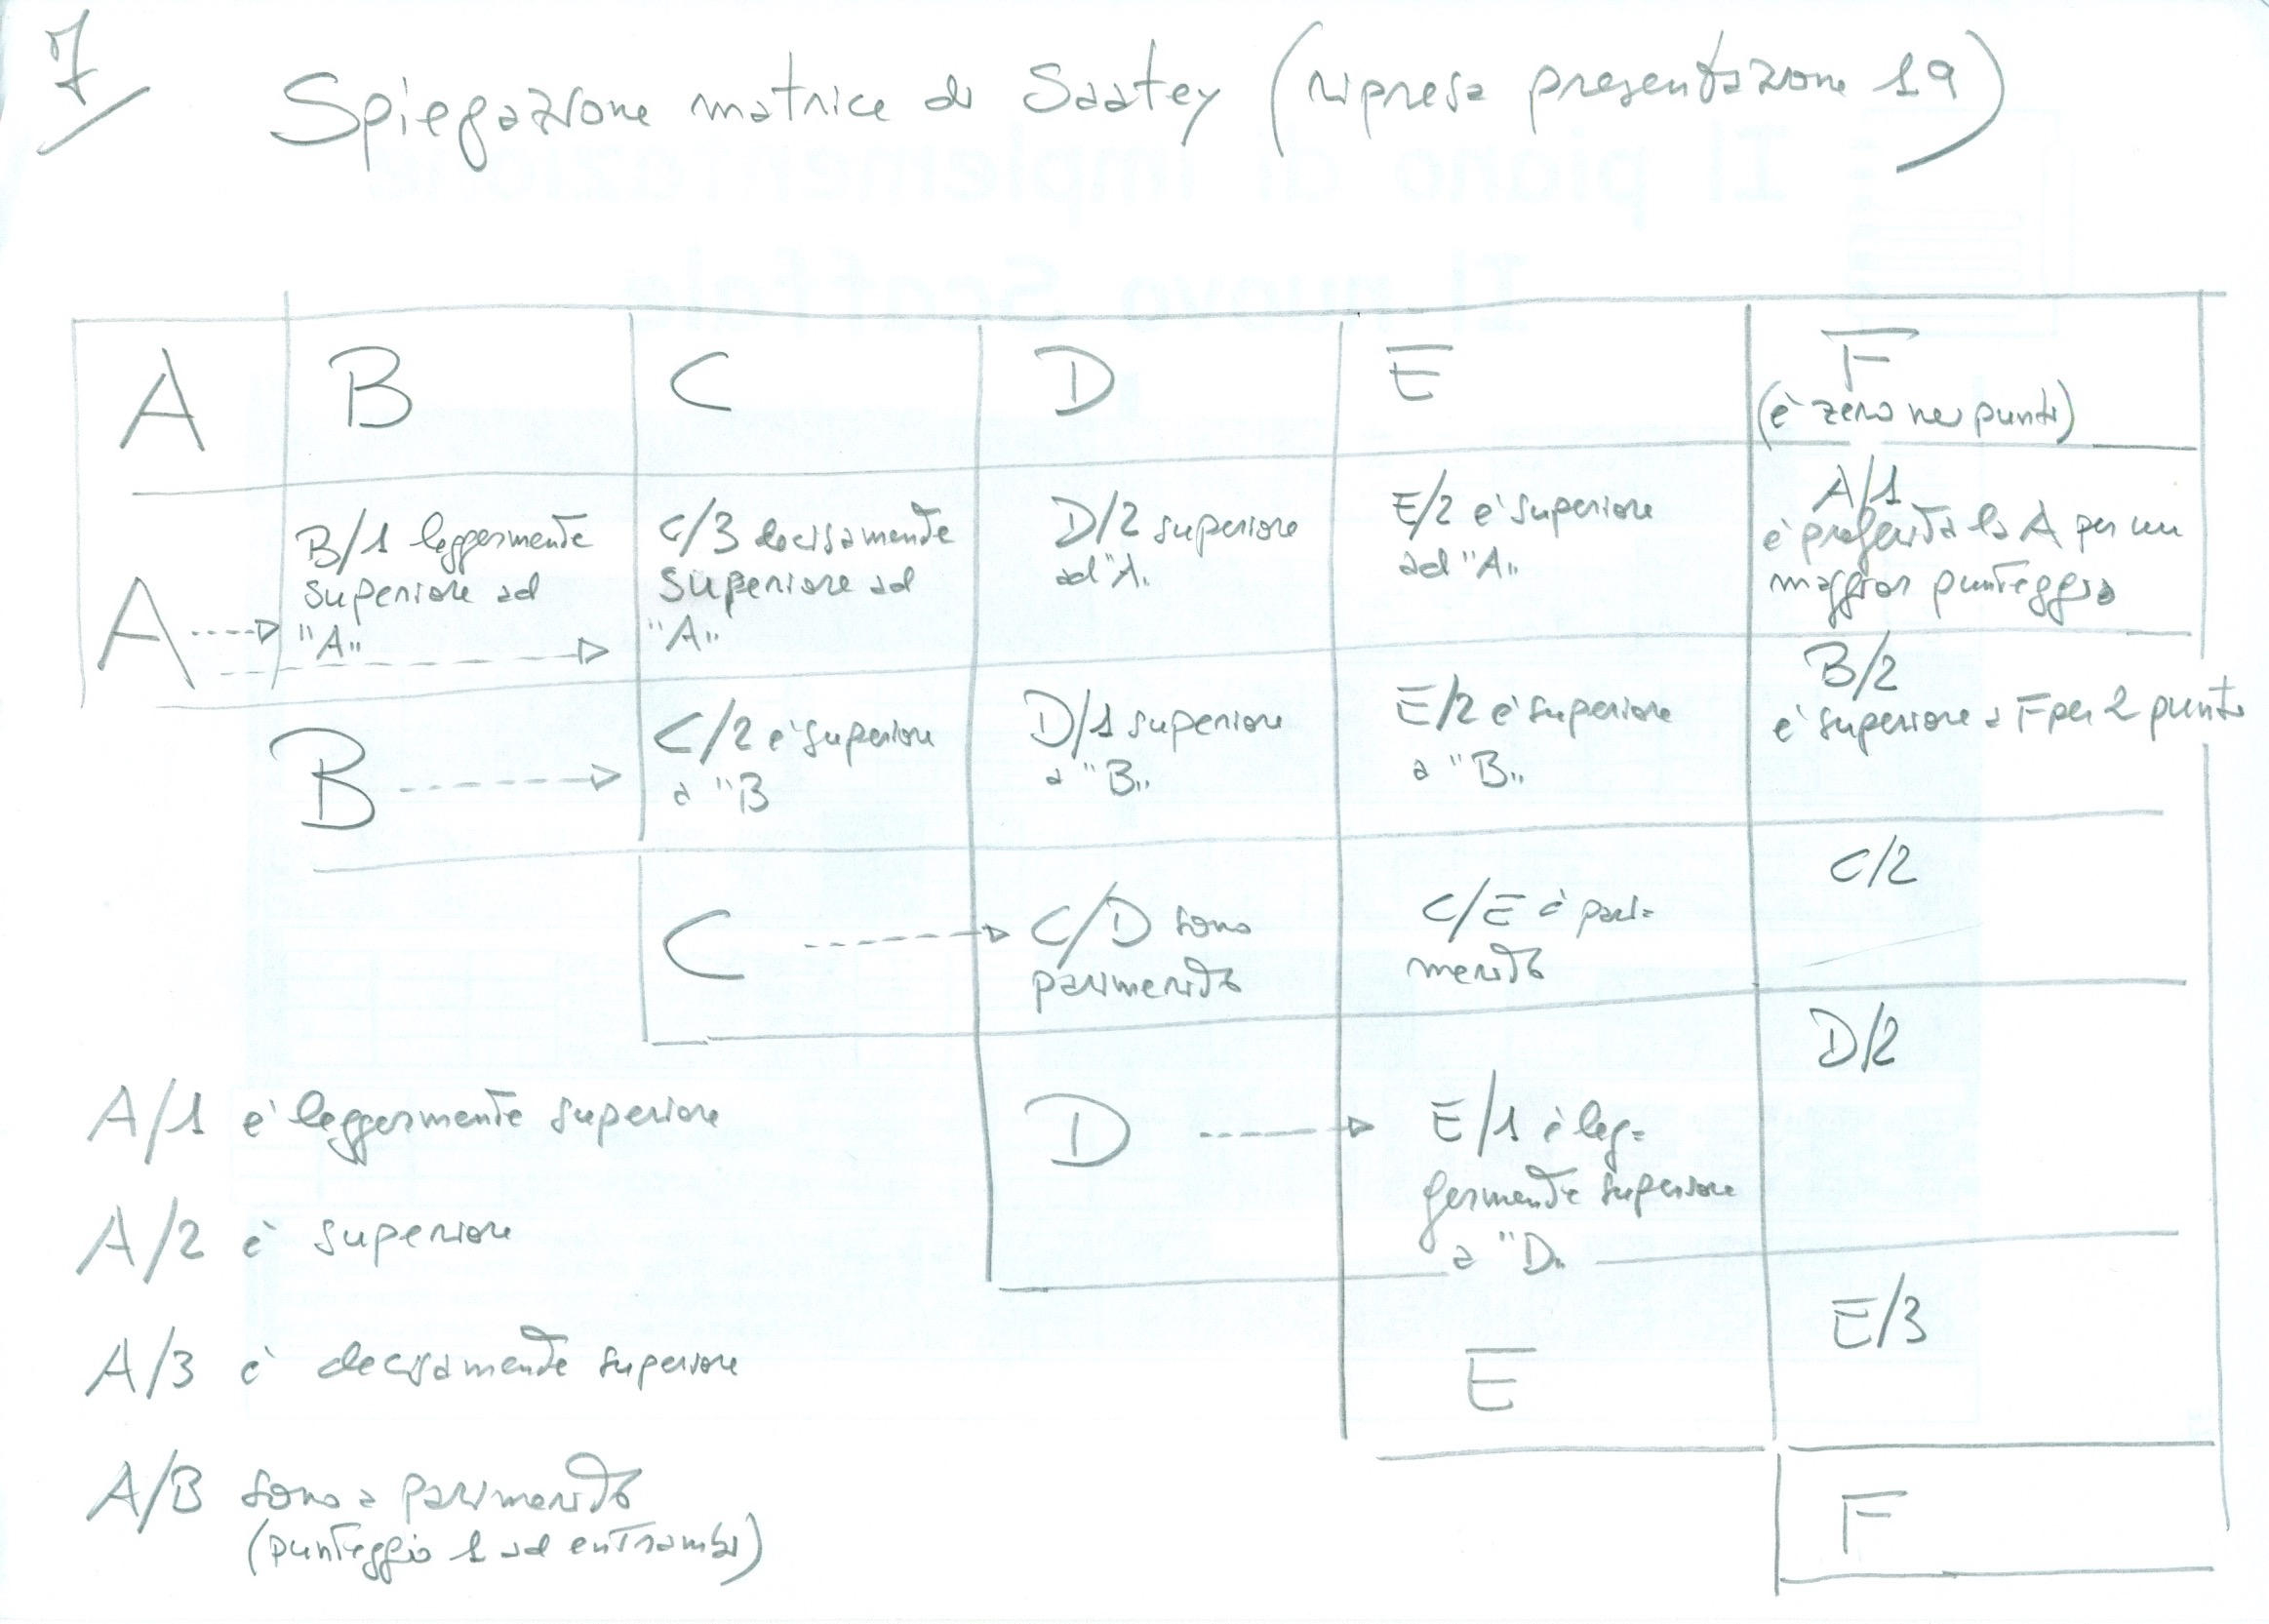 7
Spiegazione matrice di Saatey (ripresa presentazione 19)
A
B
C
D
E
F
(è zero nei punti)
A
B/1 leggermente
superiore ad
"A"
C/3 decisamente
superiore ad
"A"
D/2 superiore
ad "A"
E/2 è superiore
ad "A"
A/1
è preferita la A per un
maggior punteggio
B
C/2 è superiore
a "B
D/1 superiore
a "B"
E/2 è superiore
a "B"
B/2
è superiore a F per 2 punti
C
C/D sono
parimerito
C/E è pari=
merito
C/2
D
E/1 è leg=
germente superiore
a "D"
D/2
E
E/3
F
A/1 è leggermente superiore
A/2 è superiore
A/3 è decisamente superiore
A/B sono a parimerito
(punteggio 1 ad entrambi)
Il piano di implementazione
Il nuovo Scaffale